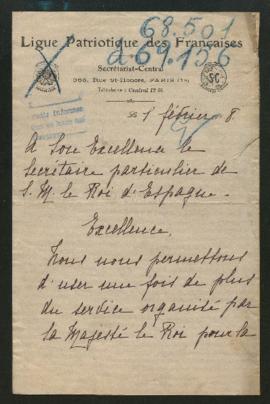 68.501
a 69.156
Ligue Patriotique des Françaises
Secrétariat-Central
368, Rue St-Honoré, PARIS (1er)
Téléphone : Central
1 février 8.
A Son Excellence le
Secrétaire particulier de
S. M. le Roi d'Espagne.
Excellence,
Nous nous permettons
d'user une fois de plus
du service organisé par
Sa Majesté le Roi pour la